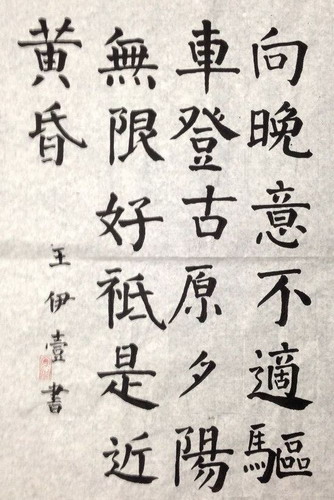 向晚意不適驅
車登古原夕陽
無限好祗是近
黄昏
王伊壹書